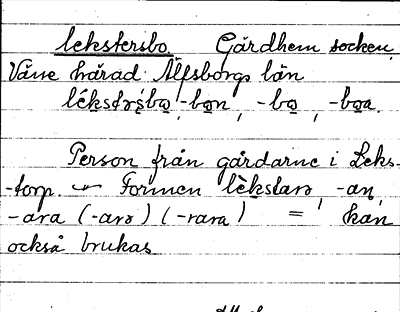 lekstersbo Gärdhem socken,
Väne härad Älfsborgs län
-bon, -bo, -boa.
Person från gårdarne i Leks-
-torp. Formen lèkstarə, -an,
-ara (-arə) (-rara) = kan
också brukas